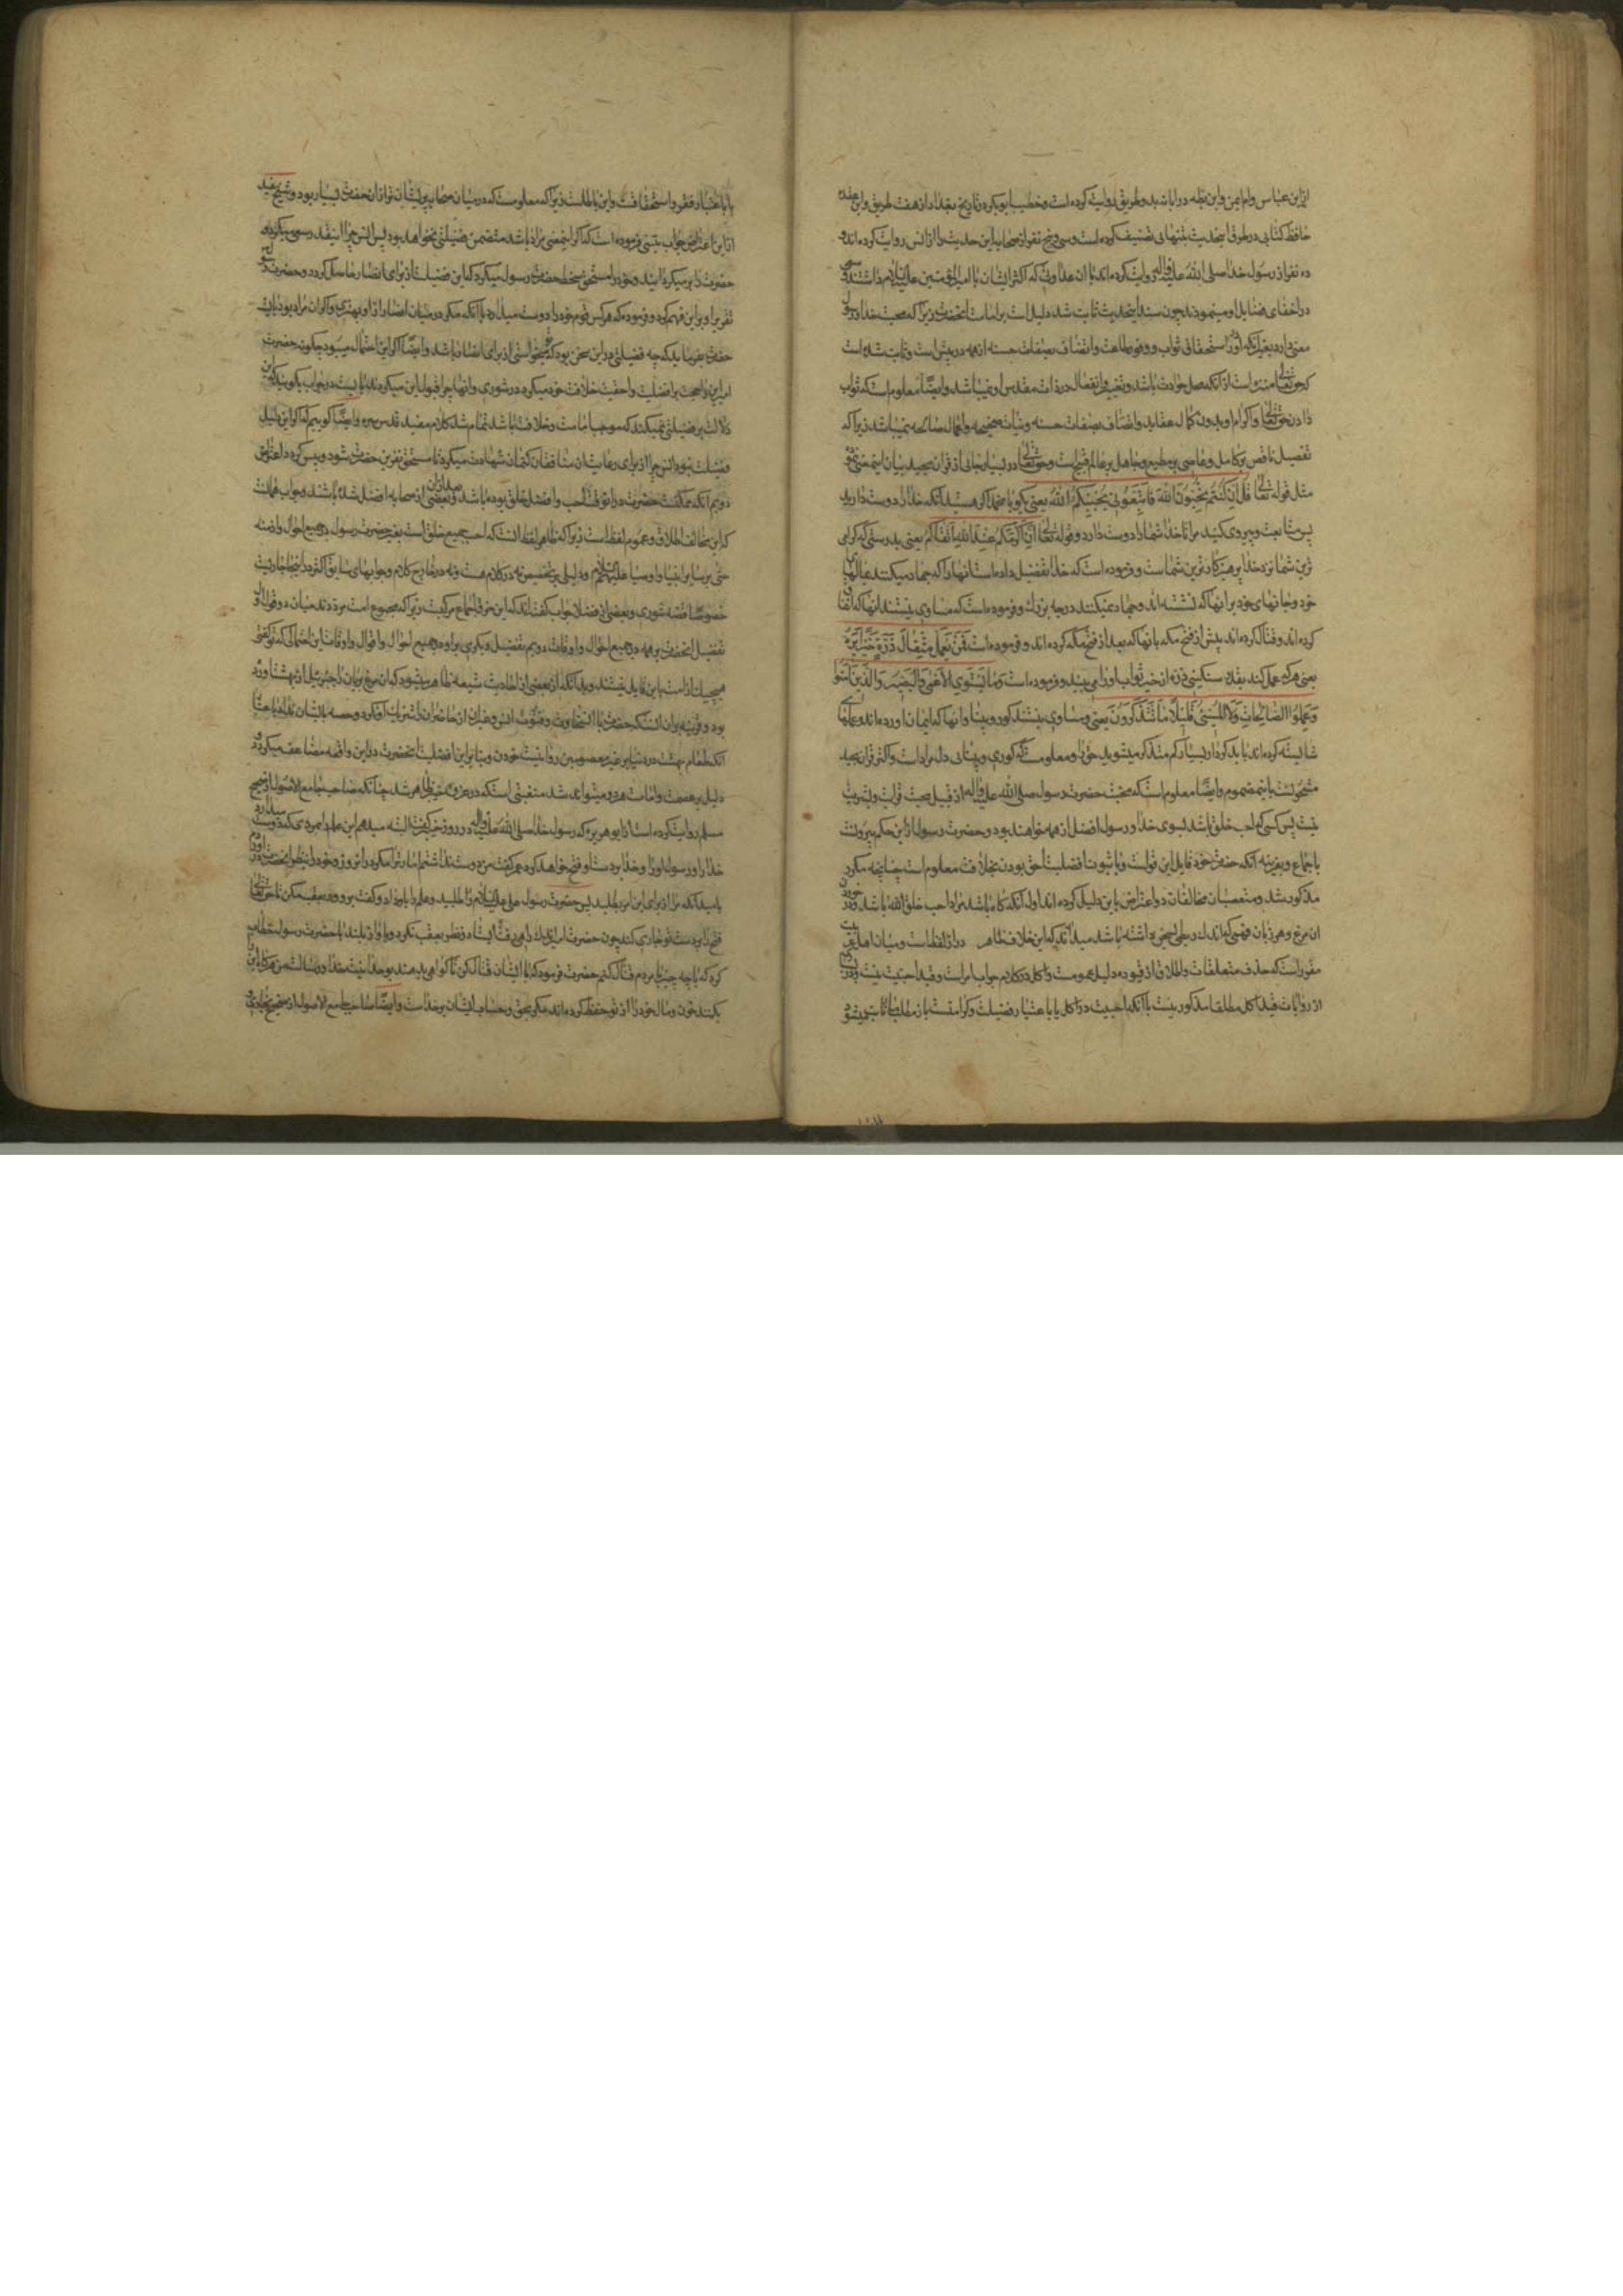 از ابن عباس و ام ایمن و ابن بطه در ابانه بدو طریق روایت کرده است و خطیب ابوبکر در تاریخ بغداد از هفت طریق و ابن عقده
حافظ کتابی در طرق این حدیث بتنهائی تصنیف کرده است و سی و پنج نفر از صحابه این حدیث را از انس روایت کرده اند و
ده نفر از رسول خدا صلی الله علیه و آله روایت کرده اند با آن عداوتی که اکثر ایشان با امیرالمؤمنین علیه السلام داشتند و
در اخفای فضایل او مینمودند چون سند این حدیث ثابت شد دلیل است بر امامت آنحضرت زیرا که محبت خدا و رسول
معنی دارد بغیر آنکه او را استحقاق ثواب و وفور طاعت و اتصاف بصفات حسنه از همه در پیش است و ثابت شده است
که حق تعالی منزه است از آنکه محل حوادث باشد و تغییر و انفعال در ذات مقدس او نمیباشد و ایضا معلوم است که ثواب
دادن حق تعالی و اکرام او بدون کمال عقاید و اتصاف بصفات حسنه و نیات صحیحه و اعمال صالحه نمیباشد زیرا که
تفضیل ناقص بر کامل و عاصی بر مطیع و جاهل بر عالم قبیح است و حق تعالی در بسیار جائی از قرآن مجید بیان این معنی
مثل قوله تعالی قل ان کنتم تحبون الله فاتبعونی یحببکم الله یعنی بگو یا محمد اگر هستید آنکه خدا را دوست دارید
پس متابعت و پیروی کنید مرا تا خدا شما را دوست دارد و قوله تعالی ان اکرمکم عند الله اتقاکم یعنی بدرستی که گرامی
ترین شما نزد خدا پرهیزکارترین شماست و فرموده است که خدا تفضیل داده است آنها را که جهاد میکنند بمالهای
خود و جانهای خود بر آنها که نشسته اند و جهاد نمیکنند درجه بزرک و فرموده است که مساوی نیستند آنها که انفاق
کرده اند و قتال کرده اند پیش از فتح مکه با آنها که بعد از فتح مکه کرده اند و فرموده است فمن یعمل مثقال ذرة خیرا یره
یعنی هر که عمل کند بقدر سنگینی ذره از خیر ثواب او را می بیند و فرموده است و ما یستوی الاعمی و البصیر و الذین آمنوا
و عملوا الصالحات و لا المسیئ قلیلا ما تتذکرون یعنی و مساوی نیستند کور و بینا و آنها که ایمان آورده اند و عملهای
شایسته کرده اند با بدکردار بسیار کم متذکر میشوید حق را و معلومست که کوری و بینائی دل مراد است و اکثر قرآن مجید
مشحونست باین مضموم و ایضا معلوم است که محبت حضرت رسول صلی الله علیه و آله از قبیل محبت قرابت و بشریت
نیست پس کسی که احب خلق باشد بسوی خدا و رسول افضل از همه خواهد بود و حضرت رسول از این حکم بیرونست
باجماع و بقرینه آنکه حضرت خود قایل این قولست و با ثبوت افضلیت احق بودن بخلافت معلوم است چنانچه مکرر
مذکور شد و متعصبان مخالفان دو اعتراض باین دلیل کرده اند اول آنکه گاه باشد مراد احب خلق الله باشد در خوردن
آن مرغ و هر زبان فهمی که اندک ربطی بسخن داشته باشد میداند که این خلاف ظاهر در از لفظ است و میان اهل عربیت
مقرر است که حذف متعلقات و اطلاق از قیود دلیل عمومست و اکل در کلام جواب امر است و قید احبیت نیست و در بسیاری
از روایات قید اکل مطلقا مذکور نیست با آنکه احبیت در اکل یا باعتبار فضیلت و کرامتست باز مطلب ما ثابت میشود
یا باعتبار فقر و استحقاقست و این باطلست زیرا که معلومست که در میان صحابه پریشان تر از آن حضرت بسیار بود و شیخ مفید
از این اعتراض جواب متینی فرموده است که اگر این معنی مراد باشد متضمن فضیلتی نخواهد بود پس انس چرا اینقدر سعی میکرد و
حضرت را بر میگردانید و خود را مستحق سخط حضرت رسول میکرد که این فضیلت از برای انصار حاصل گردد و حضرت رسول
تقریر او بر این فهم کرد و فرمود که هر کس قوم خود را دوست میدارد با آنکه مکرر در میان انصار از او بهتری و اگر آن مراد بود بایست
حضرت بفرماید که چه فضیلتی در این سخن بود که تو میخواستی از برای انصار باشد و ایضا اگر این احتمال میبود چگونه حضرت
امیر این را حجت بر افضلیت و احقیت خلافت خود میکرد در شوری و آنها چرا قبول این میکردند بایست در جواب بگویند که این
دلالت بر فضیلتی نمیکند که موجب امامت و خلافت باشد تمام شد کلام مفید قدس سره و ایضا گوییم که اگر این دلیل
فضیلت نبود انس چرا از برای رعایت آن منافقان کتمان شهادت میکرد تا مستحق نفرین حضرت شود و پیس گردد اعتراض
دویم آنکه ممکنست حضرت در آن وقت احب و افضل خلق بوده باشد و بعد از آن بعضی از صحابه افضل شده باشند و جواب همانست
که این مخالف اطلاق و عموم لفظ است زیرا که ظاهر لفظ آنست که احب جمیع خلق است بغیر حضرت رسول در جمیع احوال و ازمنه
حتی بر سایر انبیا و اوصیا علیهم السلام و دلیلی بر تخصیص نه در کلام هست و نه در خارج کلام و جوابهای سابق اکثر در اینجا جاریست
خصوصا قصه شوری و بعضی از فضلا جواب گفته اند که این خرق اجماع مرکبست زیرا که مجموع امت مرددند میان دو قول اول
تفضیل آنحضرت بر همه در جمیع احوال و اوقات دویم تفضیل دیگری بر او در جمیع احوال و اقوال و اوقات این احتمالی که تو گفتی
هیچیک از امت باین قایل نیستند و بدانکه از بعضی از احادیث شیعه ظاهر میشود که آن مرغ بریان را جبرئیل از بهشت آورده
بود و قرینه بر آن اینست که حضرت با آن سخاوت و فتوت انس و غیر آن از حاضران را شریک آن نکرد و حصه بایشان نداد باعتبار
آنکه طعام بهشت در دنیا بر غیر معصومین روا نیست خوردن و بنابراین فضیلت آنحضرت در این واقعه مضاعف میگردد و
دلیل بر عصمت و امامت هر دو میتواند شد منقبتی است که در غزوه خیبر ظاهر شد چنانکه صاحب جامع الاصول از صحیح
مسلم روایت کرده است از ابو هریره که رسول خدا صلی الله علیه و آله در روز خیبر گفت البته میدهم این علم را بمردی که دوست میدارد
خدا را و رسول او را و خدا بر دست او فتح خواهد کرد عمر گفت من دوست نداشتم امارت را مگر در آن روز و خود را بنظر آنحضرت در آوردم
بامید آنکه مرا از برای این امر بطلبد پس حضرت رسول علی علیه السلام را طلبید و علم را باو داد و گفت برو و رو بعقب مکن تا حق تعالی
فتح را بر دست تو جاری کند چون حضرت امیر اندک راهی رفت ایستاد و نظر بعقب نکرد و باواز بلند با حضرت رسول خطاب
کرد که با چه چیز با مردم قتال کنم حضرت فرمود که با ایشان قتال کن تا گواهی بدهند بوحدانیت خدا و رسالت من هرگاه این
بکنند خون و مال خود را از تو حفظ کرده اند مگر بحق و حساب ایشان بر خداست و ایضا صاحب جامع الاصول از صحیح بخاری و